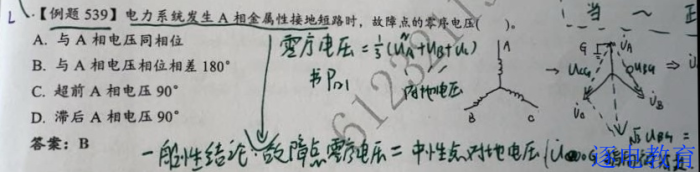 【例题 539】电力系统发生 A 相金属性接地短路时，故障点的零序电压( )。
A. 与 A 相电压同相位
B. 与 A 相电压相位相差 180°
C. 超前 A 相电压 90°
D. 滞后 A 相电压 90°
答案：B
零序电压 = 1/3 (UA+UB+Uc)
书P21
对地电压
A
B
C
G
UA
UBG
UCG
一般性结论：故障点零序电压 = 中性点对地电压
逐电教育